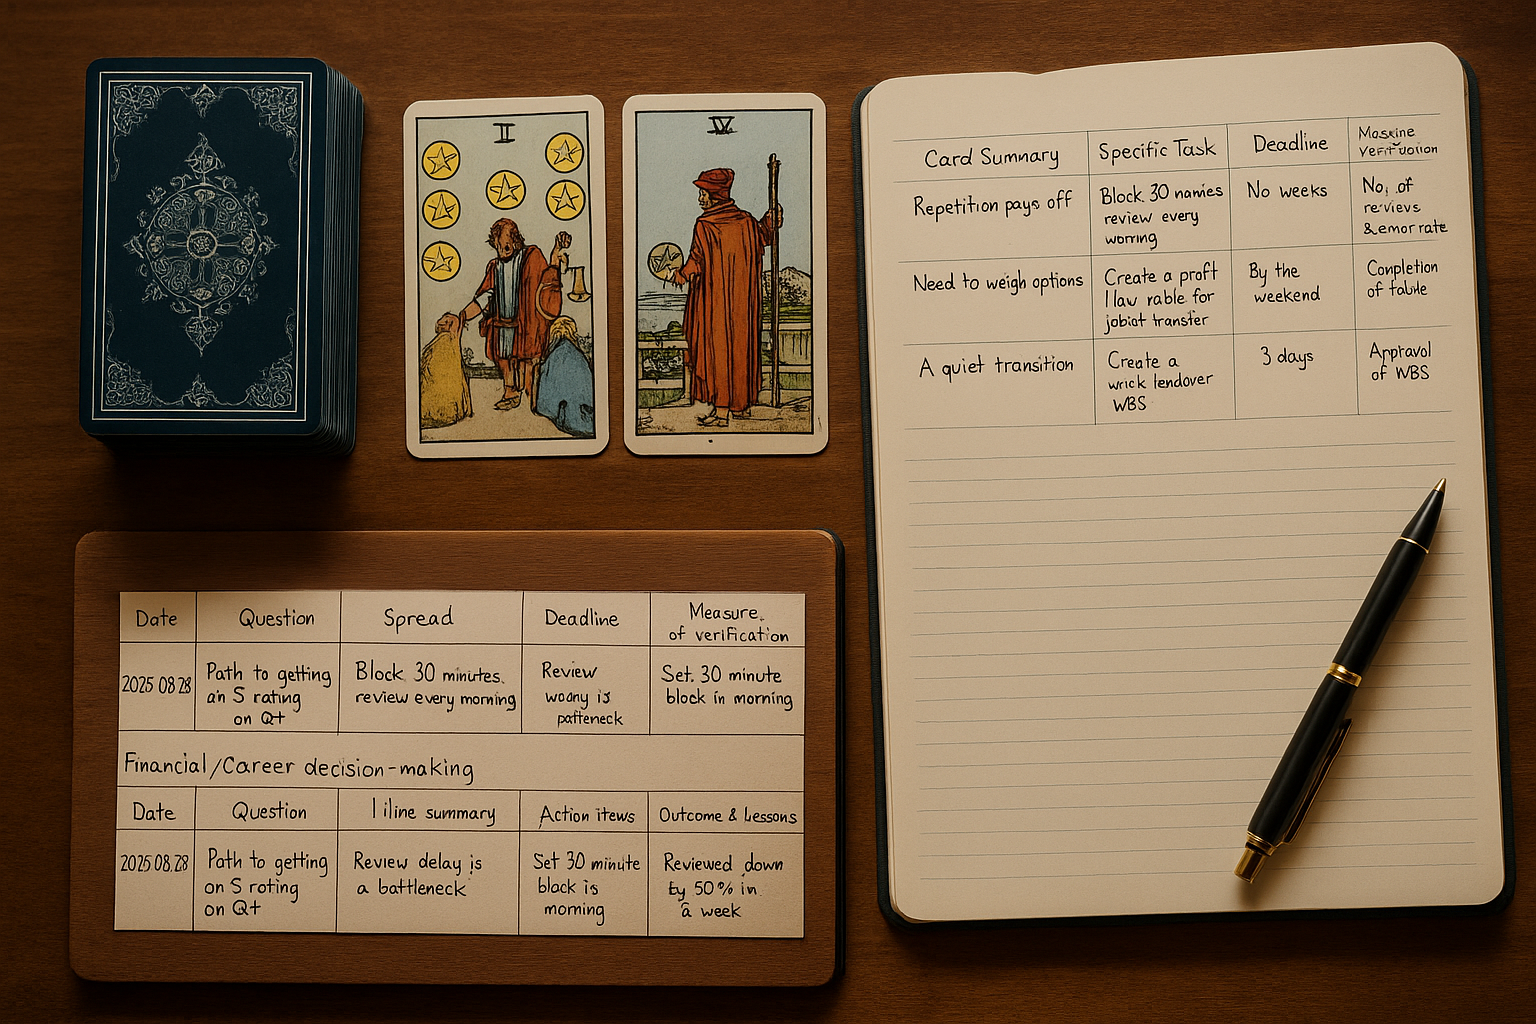 II
IV
Card Summary
Specific Task
Deadline
Repetition pays off
Block 30
review every
No weeks
No. of
reviews
Need to weigh options
Create a
for
transfer
By the
weekend
Completion
of
A quiet transition
Create a
WBS
3 days
of WBS
Date
Question
Spread
Deadline
Measure
of verification
2025 08 28
Path to getting
an S rating
on Q+
Block 30 minutes.
review every morning
Review
is
Set. 30 minute
block in morning
Financial/Career decision-making
Date
Question
summary
Action items
Outcome & Lessons
2025.08.28
Path to getting
on S roting
on Q+
Review delay is
a battleneck
Set 30 minute
block is
morning
Reviewed down
by 50% in
a week